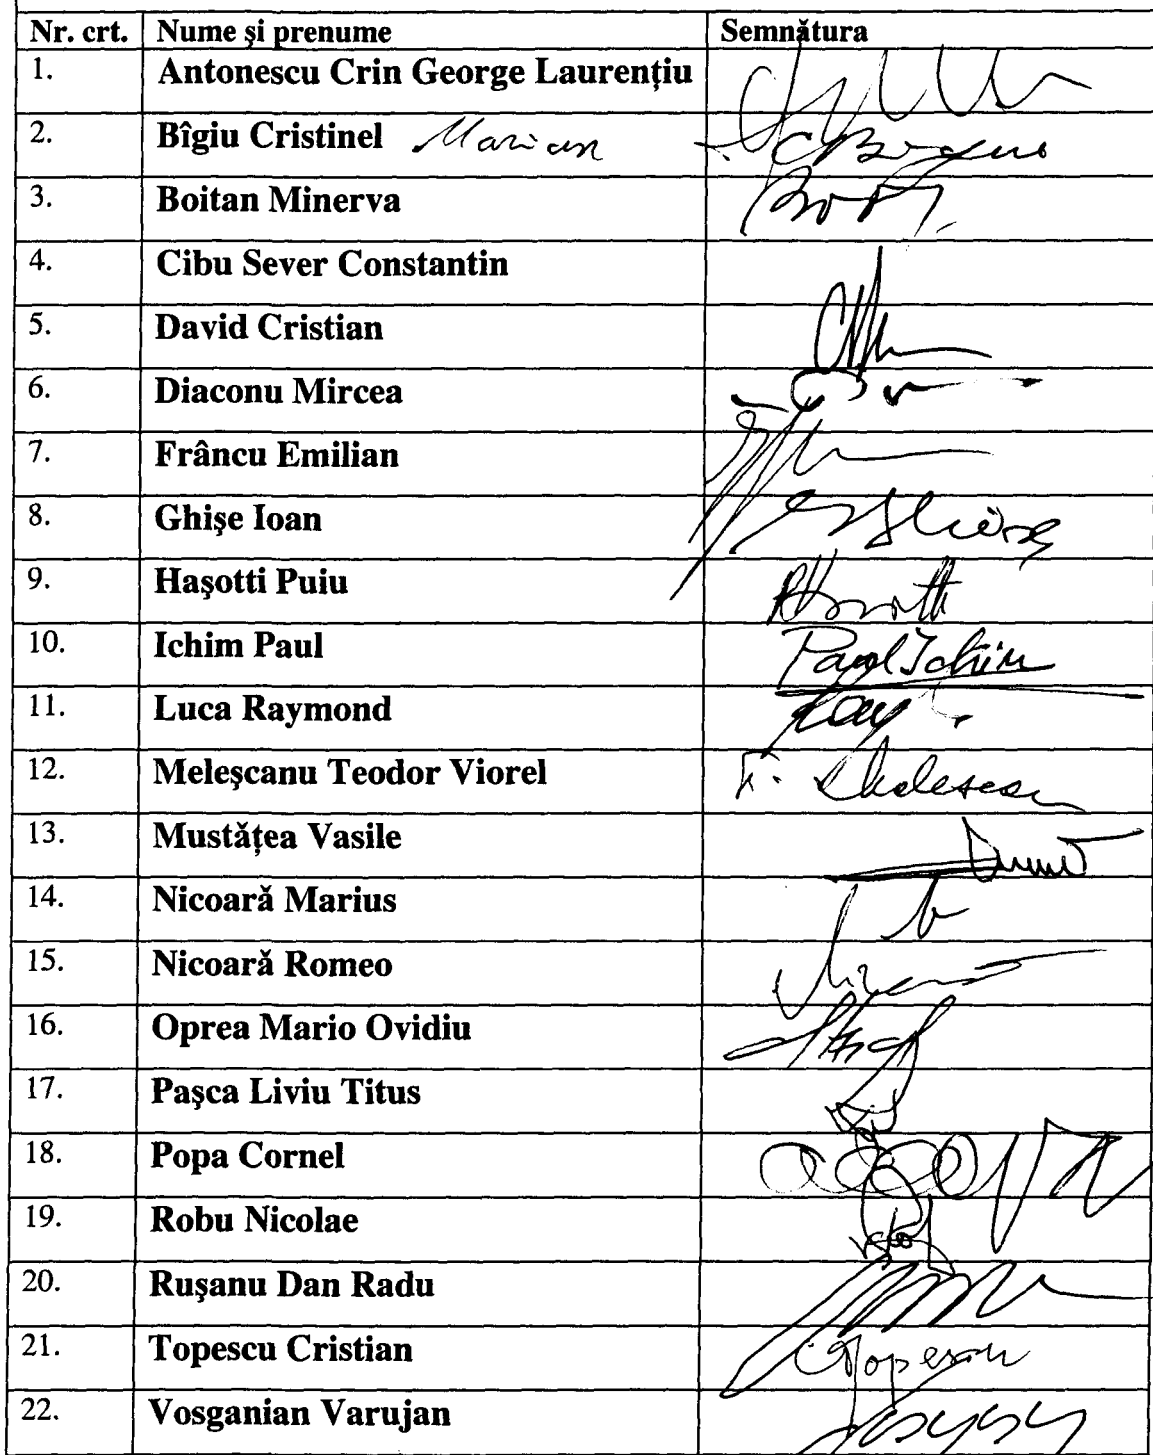 Nr. crt. Nume şi prenume Semnătura
1. Antonescu Crin George Laurenţiu
2. Bîgiu Cristinel Marian
3. Boitan Minerva
4. Cibu Sever Constantin
5. David Cristian
6. Diaconu Mircea
7. Frâncu Emilian
8. Ghişe Ioan
9. Haşotti Puiu
10. Ichim Paul Paul Ichim
11. Luca Raymond
12. Meleşcanu Teodor Viorel
13. Mustăţea Vasile
14. Nicoară Marius
15. Nicoară Romeo
16. Oprea Mario Ovidiu
17. Paşca Liviu Titus
18. Popa Cornel
19. Robu Nicolae
20. Ruşanu Dan Radu
21. Topescu Cristian CTopescu
22. Vosganian Varujan